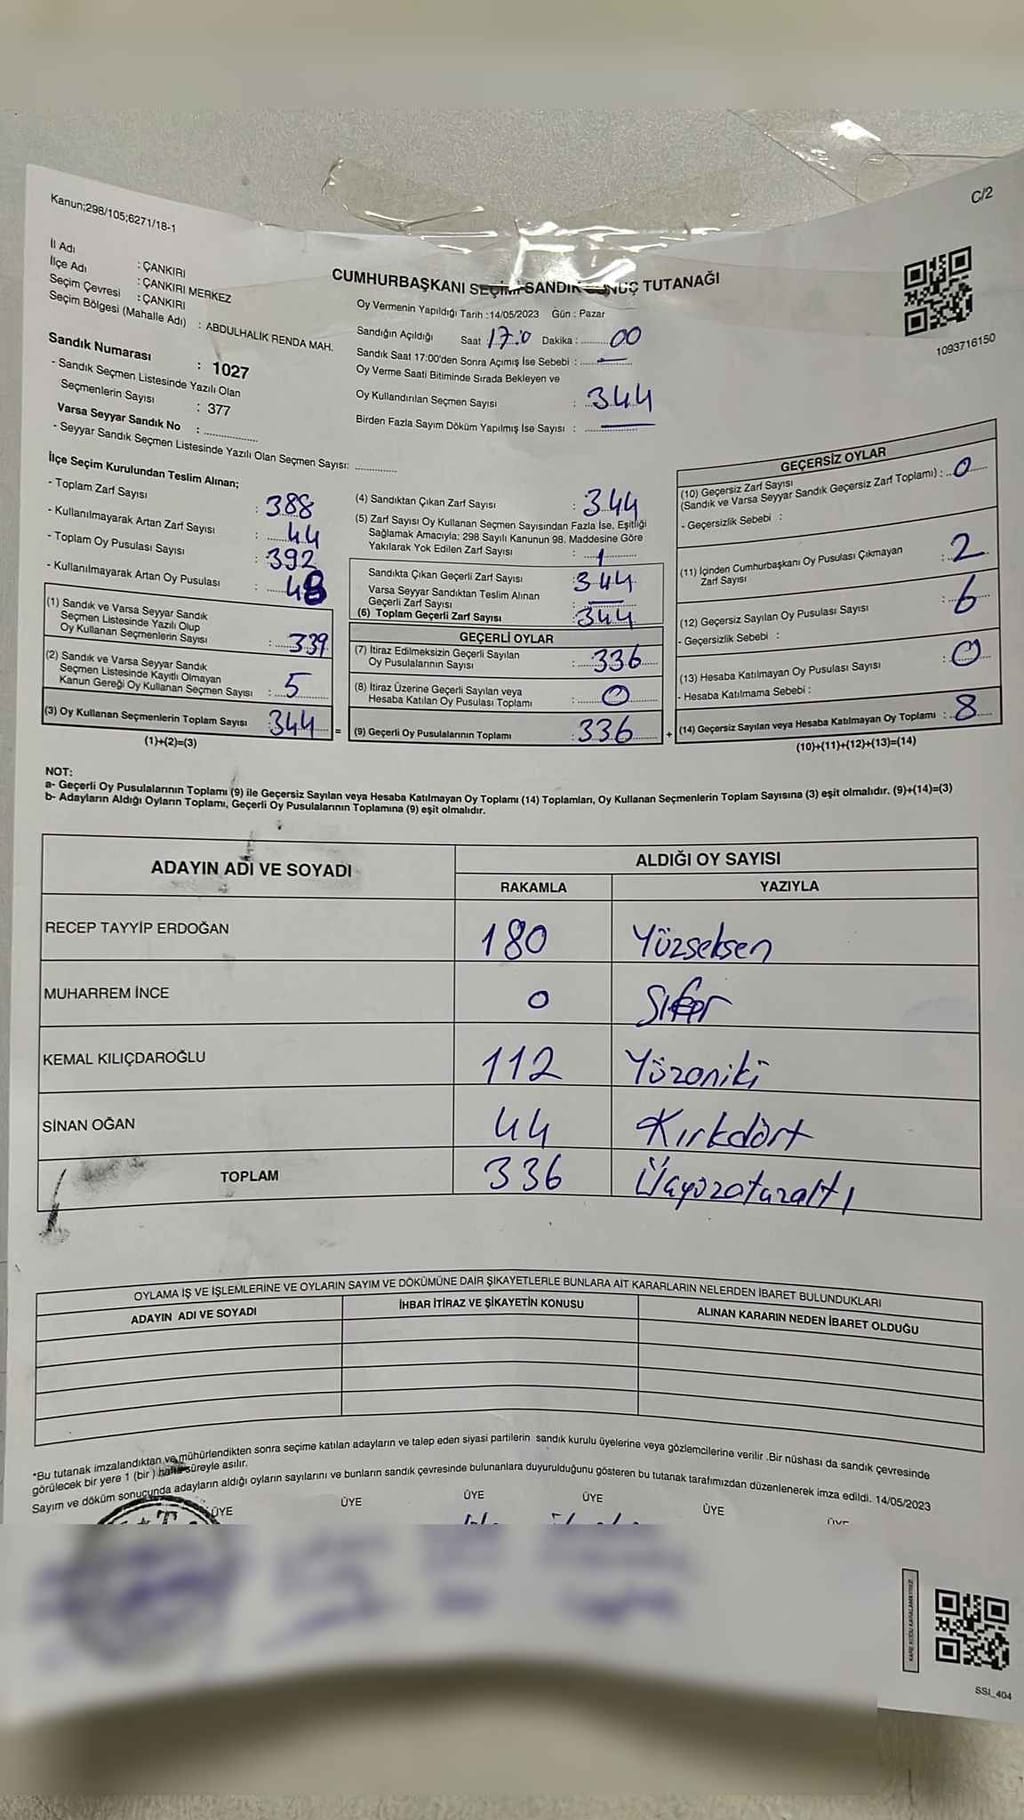 Kanun;298/105;6271/18-1
C/2
İl Adı : ÇANKIRI
İlçe Adı : ÇANKIRI MERKEZ
Seçim Çevresi : ÇANKIRI
Seçim Bölgesi (Mahalle Adı) : ABDULHALİK RENDA MAH.
Sandık Numarası : 1027
- Sandık Seçmen Listesinde Yazılı Olan
Seçmenlerin Sayısı : 377
Varsa Seyyar Sandık No : ............
- Seyyar Sandık Seçmen Listesinde Yazılı Olan Seçmen Sayısı: ............
CUMHURBAŞKANI SEÇİMİ SANDIK SONUÇ TUTANAĞI
Oy Vermenin Yapıldığı Tarih :14/05/2023 Gün : Pazar
Sandığın Açıldığı Saat 17.0 Dakika : 00
Sandık Saat 17:00'den Sonra Açımış İse Sebebi : —
Oy Verme Saati Bitiminde Sırada Bekleyen ve
Oy Kullandırılan Seçmen Sayısı : 344
Birden Fazla Sayım Döküm Yapılmış İse Sayısı : —
1093716150
İlçe Seçim Kurulundan Teslim Alınan;
- Toplam Zarf Sayısı : 388
- Kullanılmayarak Artan Zarf Sayısı : 44
- Toplam Oy Pusulası Sayısı : 392
- Kullanılmayarak Artan Oy Pusulası : 48
(1) Sandık ve Varsa Seyyar Sandık
Seçmen Listesinde Yazılı Olup
Oy Kullanan Seçmenlerin Sayısı : 339
(2) Sandık ve Varsa Seyyar Sandık
Seçmen Listesinde Kayıtlı Olmayan
Kanun Gereği Oy Kullanan Seçmen Sayısı : 5
(3) Oy Kullanan Seçmenlerin Toplam Sayısı : 344 =
(1)+(2)=(3)
(4) Sandıktan Çıkan Zarf Sayısı : 344
(5) Zarf Sayısı Oy Kullanan Seçmen Sayısından Fazla İse, Eşitliği
Sağlamak Amacıyla; 298 Sayılı Kanunun 98. Maddesine Göre
Yakılarak Yok Edilen Zarf Sayısı : 1
Sandıkta Çıkan Geçerli Zarf Sayısı : 344
Varsa Seyyar Sandıktan Teslim Alınan
Geçerli Zarf Sayısı : —
(6) Toplam Geçerli Zarf Sayısı : 344
GEÇERLİ OYLAR
(7) İtiraz Edilmeksizin Geçerli Sayılan
Oy Pusulalarının Sayısı : 336
(8) İtiraz Üzerine Geçerli Sayılan veya
Hesaba Katılan Oy Pusulası Toplamı : 0
(9) Geçerli Oy Pusulalarının Toplamı : 336 +
GEÇERSİZ OYLAR
(10) Geçersiz Zarf Sayısı
(Sandık ve Varsa Seyyar Sandık Geçersiz Zarf Toplamı) : 0
- Geçersizlik Sebebi :
(11) İçinden Cumhurbaşkanı Oy Pusulası Çıkmayan
Zarf Sayısı : 2
(12) Geçersiz Sayılan Oy Pusulası Sayısı : 6
- Geçersizlik Sebebi :
(13) Hesaba Katılmayan Oy Pusulası Sayısı : 0
- Hesaba Katılmama Sebebi :
(14) Geçersiz Sayılan veya Hesaba Katılmayan Oy Toplamı : 8
(10)+(11)+(12)+(13)=(14)
NOT:
a- Geçerli Oy Pusulalarının Toplamı (9) ile Geçersiz Sayılan veya Hesaba Katılmayan Oy Toplamı (14) Toplamları, Oy Kullanan Seçmenlerin Toplam Sayısına (3) eşit olmalıdır. (9)+(14)=(3)
b- Adayların Aldığı Oyların Toplamı, Geçerli Oy Pusulalarının Toplamına (9) eşit olmalıdır.
ADAYIN ADI VE SOYADI
ALDIĞI OY SAYISI
RAKAMLA YAZIYLA
RECEP TAYYİP ERDOĞAN 180 Yüzseksen
MUHARREM İNCE 0 Sıfır
KEMAL KILIÇDAROĞLU 112 Yüzoniki
SİNAN OĞAN 44 Kırkdört
TOPLAM 336 Üçyüzotuzaltı
OYLAMA İŞ VE İŞLEMLERİNE VE OYLARIN SAYIM VE DÖKÜMÜNE DAİR ŞİKAYETLERLE BUNLARA AİT KARARLARIN NELERDEN İBARET BULUNDUKLARI
ADAYIN ADI VE SOYADI İHBAR İTİRAZ VE ŞİKAYETİN KONUSU ALINAN KARARIN NEDEN İBARET OLDUĞU
*Bu tutanak imzalandıktan ve mühürlendikten sonra seçime katılan adayların ve talep eden siyasi partilerin sandık kurulu üyelerine veya gözlemcilerine verilir .Bir nüshası da sandık çevresinde
görülecek bir yere 1 (bir ) hafta süreyle asılır.
Sayım ve döküm sonucunda adayların aldığı oyların sayılarını ve bunların sandık çevresinde bulunanlara duyurulduğunu gösteren bu tutanak tarafımızdan düzenlenerek imza edildi. 14/05/2023
ÜYE ÜYE ÜYE ÜYE ÜYE ÜYE
SSI_404